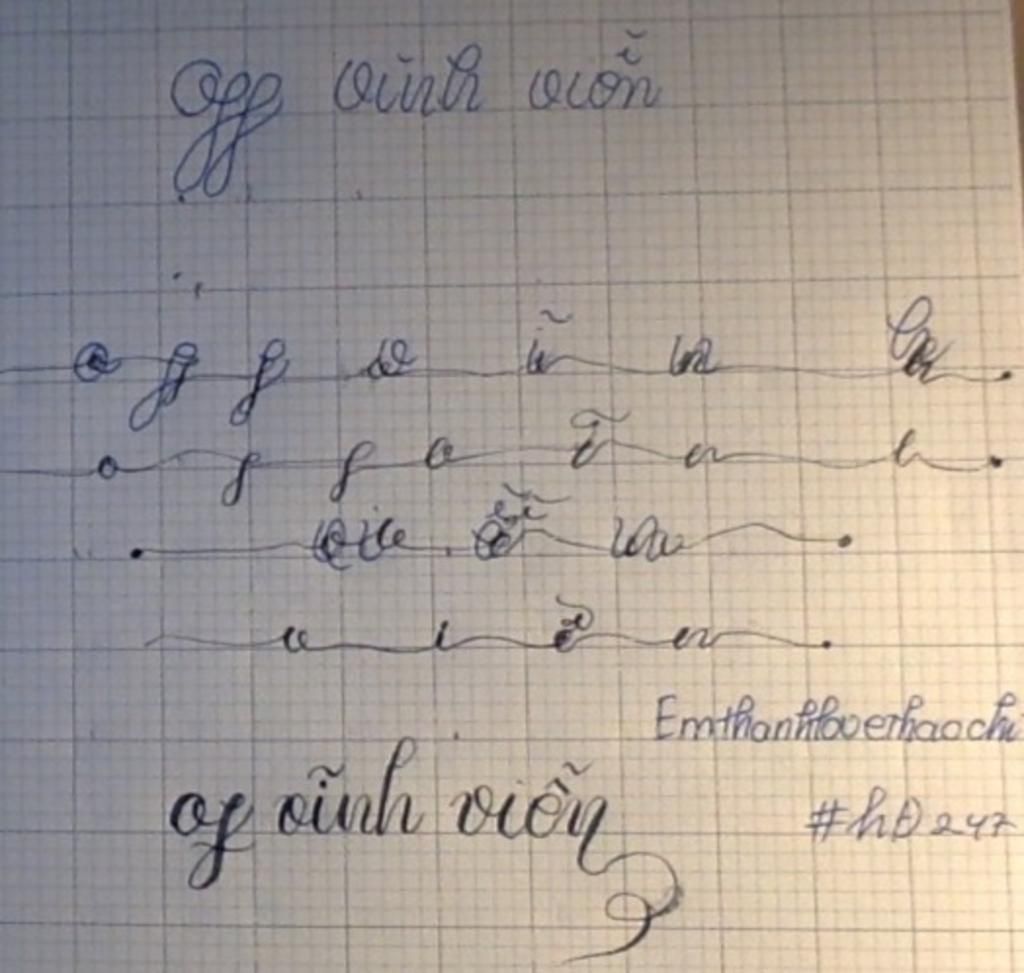 off vĩnh viễn
o f f v ĩ n h
o f f o ĩ n h
v i ễ n
v i ễ n
Emthanhloverhaochi
of vĩnh viễn
#hD247